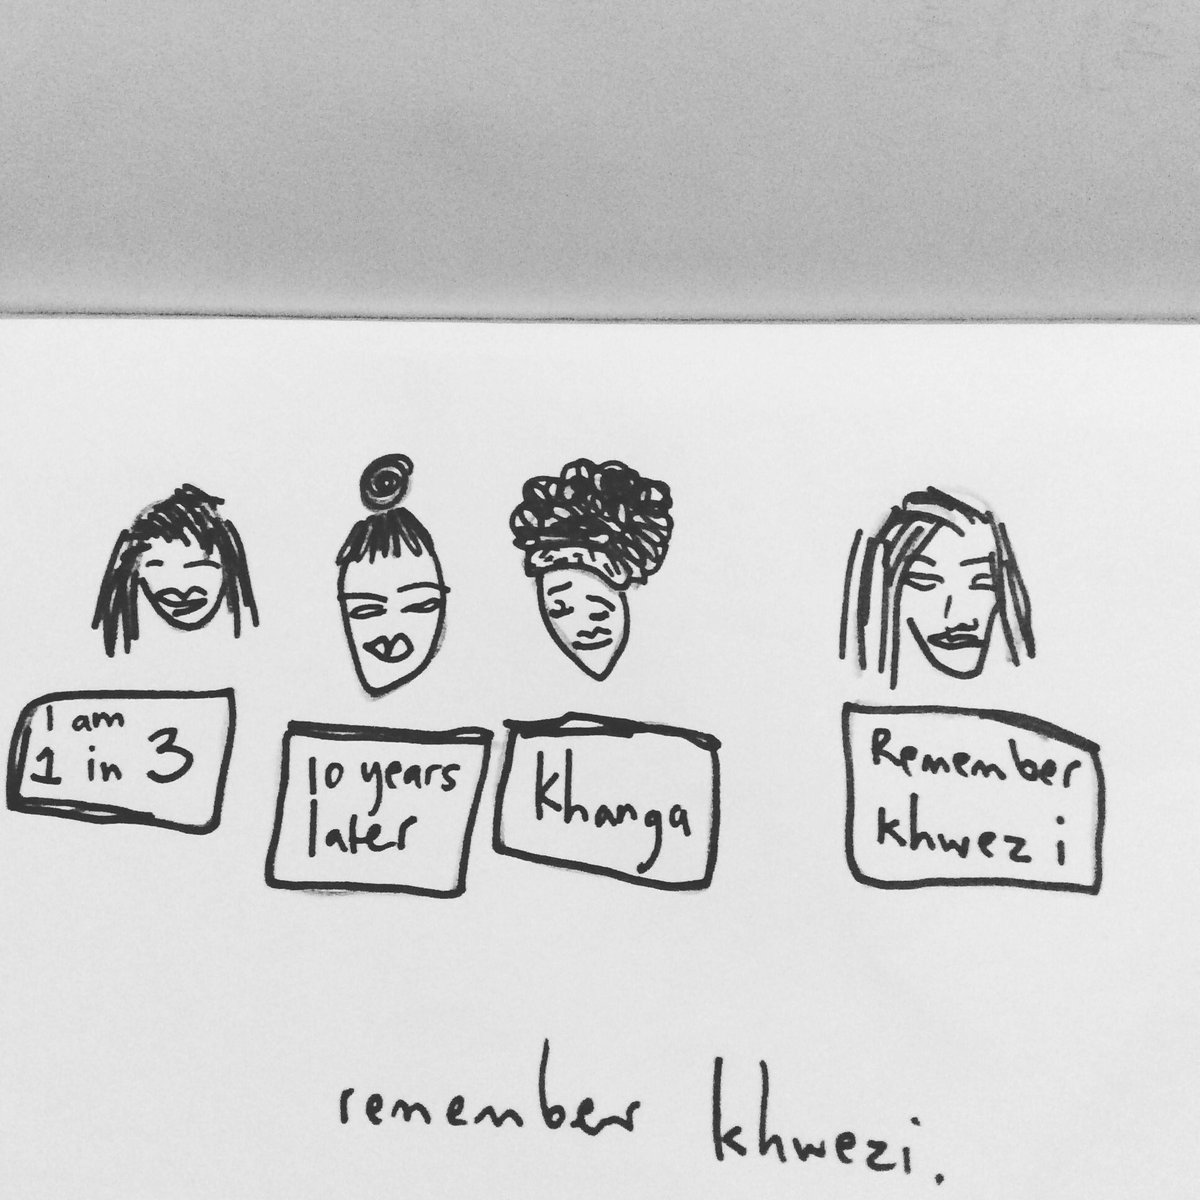 I am
1 in 3
10 years
later
Khanga
Remember
khwezi
remember khwezi.